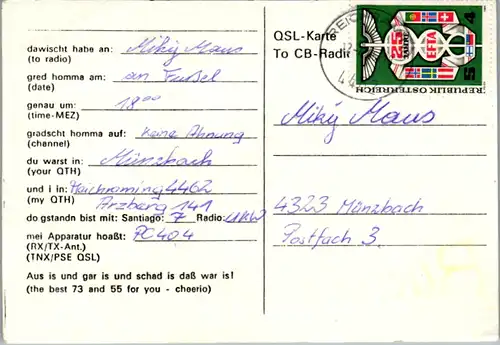 dawischt habe an: Miky Maus
(to radio)
gred homma am: an Fussel
(date)
genau um: 18 00
(time-MEZ)
gradscht homma auf: Keine Ahnung
(channel)
du warst in: Münzbach
(your QTH)
und i in: Reichraming 4462
(my QTH) Arzberg 141
do gstandn bist mit: Santiago: 7 Radio: UKW
mei Apparatur hoaßt: PC 404
(RX/TX-Ant.)
(TNX/PSE QSL)
Aus is und gar is und schad is daß war is!
(the best 73 and 55 for you - cheerio)
QSL-Karte
To CB-Radio
REPUBLIK ÖSTERREICH
25
EFTA
S 4
Miky Maus
4323 Münzbach
Postfach 3.